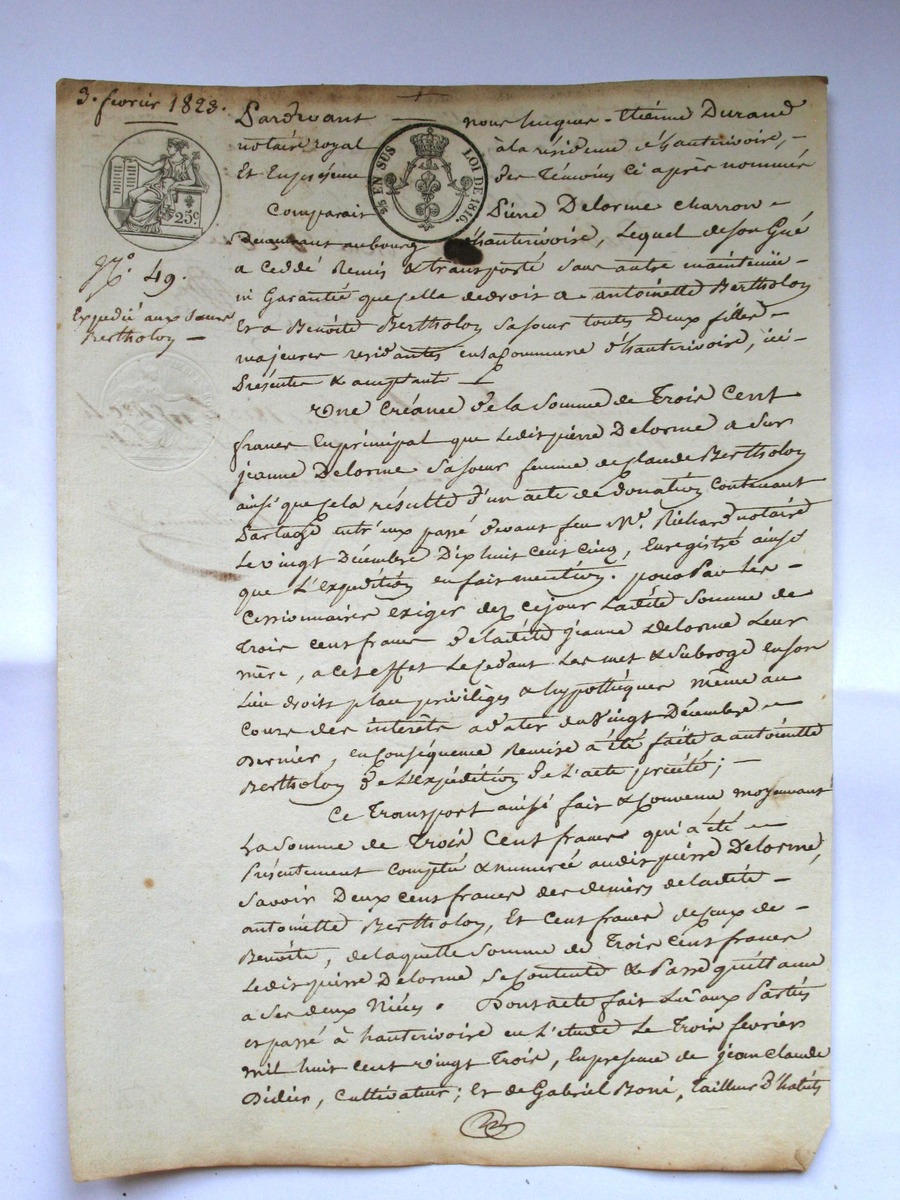 3. fevrier 1823.
Pardevant nous hugues-Etiénne Durand
notaire royal à la résidence d'hauterivoire,-
Et En présence des Témoins Ci après nommés
25 EN SUS LOI DE 1816.
25c.
Comparait Piérre Delorme charron-
demeurant au bourg d'hauterivoire, Lequel de son Gré
N.o 49.
a Ceddé Remis & transporté sans autre maintenüe-
Expedié aux Sœurs
Bertholon-
ni Garantié que celle de droit a antoinétte Bertholon
Et a Benoîte Bertholon Sa Sœur toutes Deux filles-
majeures residantes en la Commune d'hauterivoire, ici-
Présentes & acceptante-
Une Créance de la Somme de Trois Cent
francs En principal que Ledit piérre Delorme a Sur
jeanne Delorme Sa Sœur femme de Claude Bertholon
ainsi que Cela résulte d'un acte de donation Contenant
Partage entr'eux passé devant feu M.e Richard notaire
Le vingt Décembre Dix huit cent Cinq, Enregistré ainsi
que L'expédition en fait mention. pour Par Les-
Cessionnaires exiger dez ce jour Ladite Somme de
Trois cent francs de ladite jeanne Delorme Leur
mère, a cet effet Le Cedant Les met & Subroge en son
Lieu droits place priviléges & hypothèques même au
Cours des intérêts a dater du Vingt Décembre-
Dernier, en Conséquence Remise a été faite a antoinétte
Bertholon de L'Expédition de L'acte précité;-
Ce Transport ainsi fait & Convenu moyennant
La Somme de Trois Cent francs qui a été-
Présentement Comptée & numérée audit piérre Delorme,
Savoir Deux cent francs des deniers de ladite-
antoinétte Bertholon, Et Cent francs de Ceux de-
Benoîte, de laquelle Somme de Trois Cent francs
Ledit piérre Delorme Se Contente & Passe quittance
a Ses deux Niéces. Dont acte fait Lu aux Parties
et passé à hauterivoire en L'étude Le Trois fevrier
mil huit cent vingt Trois, En présence de jean Claude
Didier, Cultivateur; Et de Gabriel Boné, Tailleur d'habits